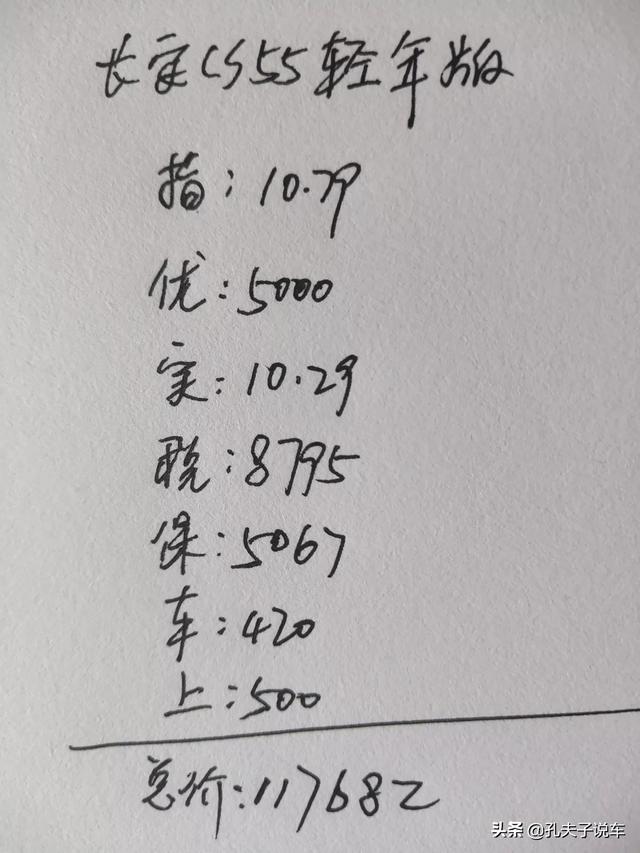 长安CS55轻年版
指:10.79
优:5000
实:10.29
税:8795
保:5067
车:420
上:500
总价:117682
头条 @孔夫子说车